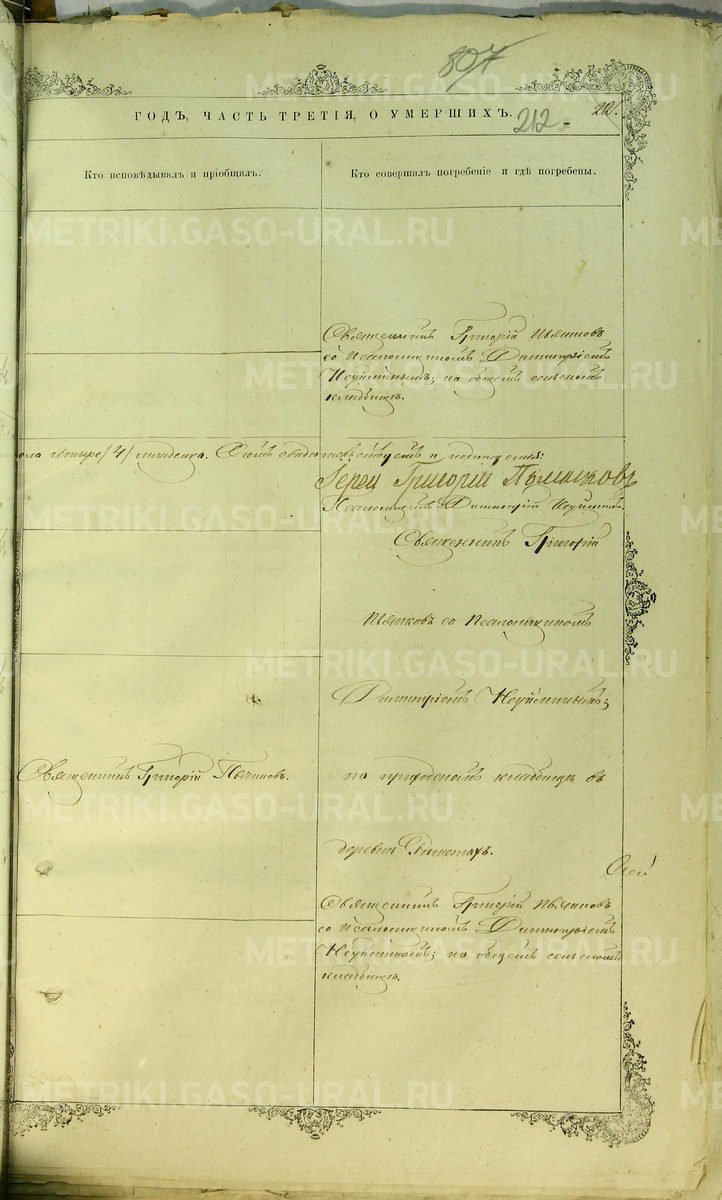 807
ГОДЪ, ЧАСТЬ ТРЕТІЯ, О УМЕРШИХЪ.
212
212.
Кто исповѣдывалъ и пріобщалъ.
Кто совершалъ погребеніе и гдѣ погребены.
METRIKI.GASO-URAL.RU
Священникъ Григорій Пьянковъ
со Псаломщикомъ Димитріемъ
на общемъ сельскомъ
кладбищѣ.
четыре /4/ младенца. В семъ свидѣтельствуемъ и подписуемся:
Іерей Григорій Пьянковъ
Псаломщикъ Димитрій
Священникъ Григорій
Пьянковъ со Псаломщикомъ
Димитріемъ
Священникъ Григорій Пьянковъ.
на приходскомъ кладбищѣ въ
деревнѣ
Священникъ Григорій Пьянковъ
со Псаломщикомъ Димитріемъ
на общемъ сельскомъ
кладбищѣ.